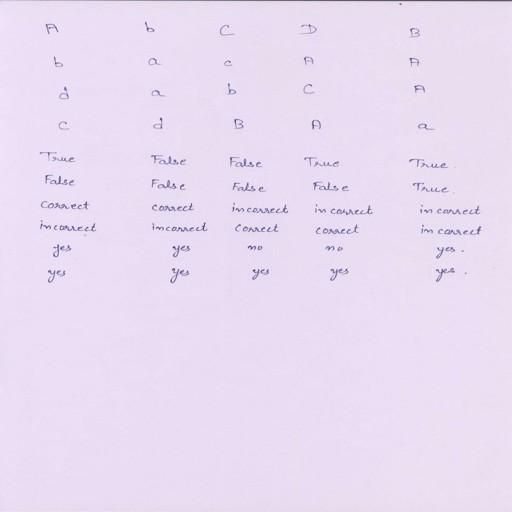 A b C D B
b a c A A
d a b C A
c d B A a
True False False True True.
False False False False True.
correct correct incorrect incorrect incorrect
incorrect incorrect correct correct incorrect
yes yes no no yes.
yes yes yes yes yes.